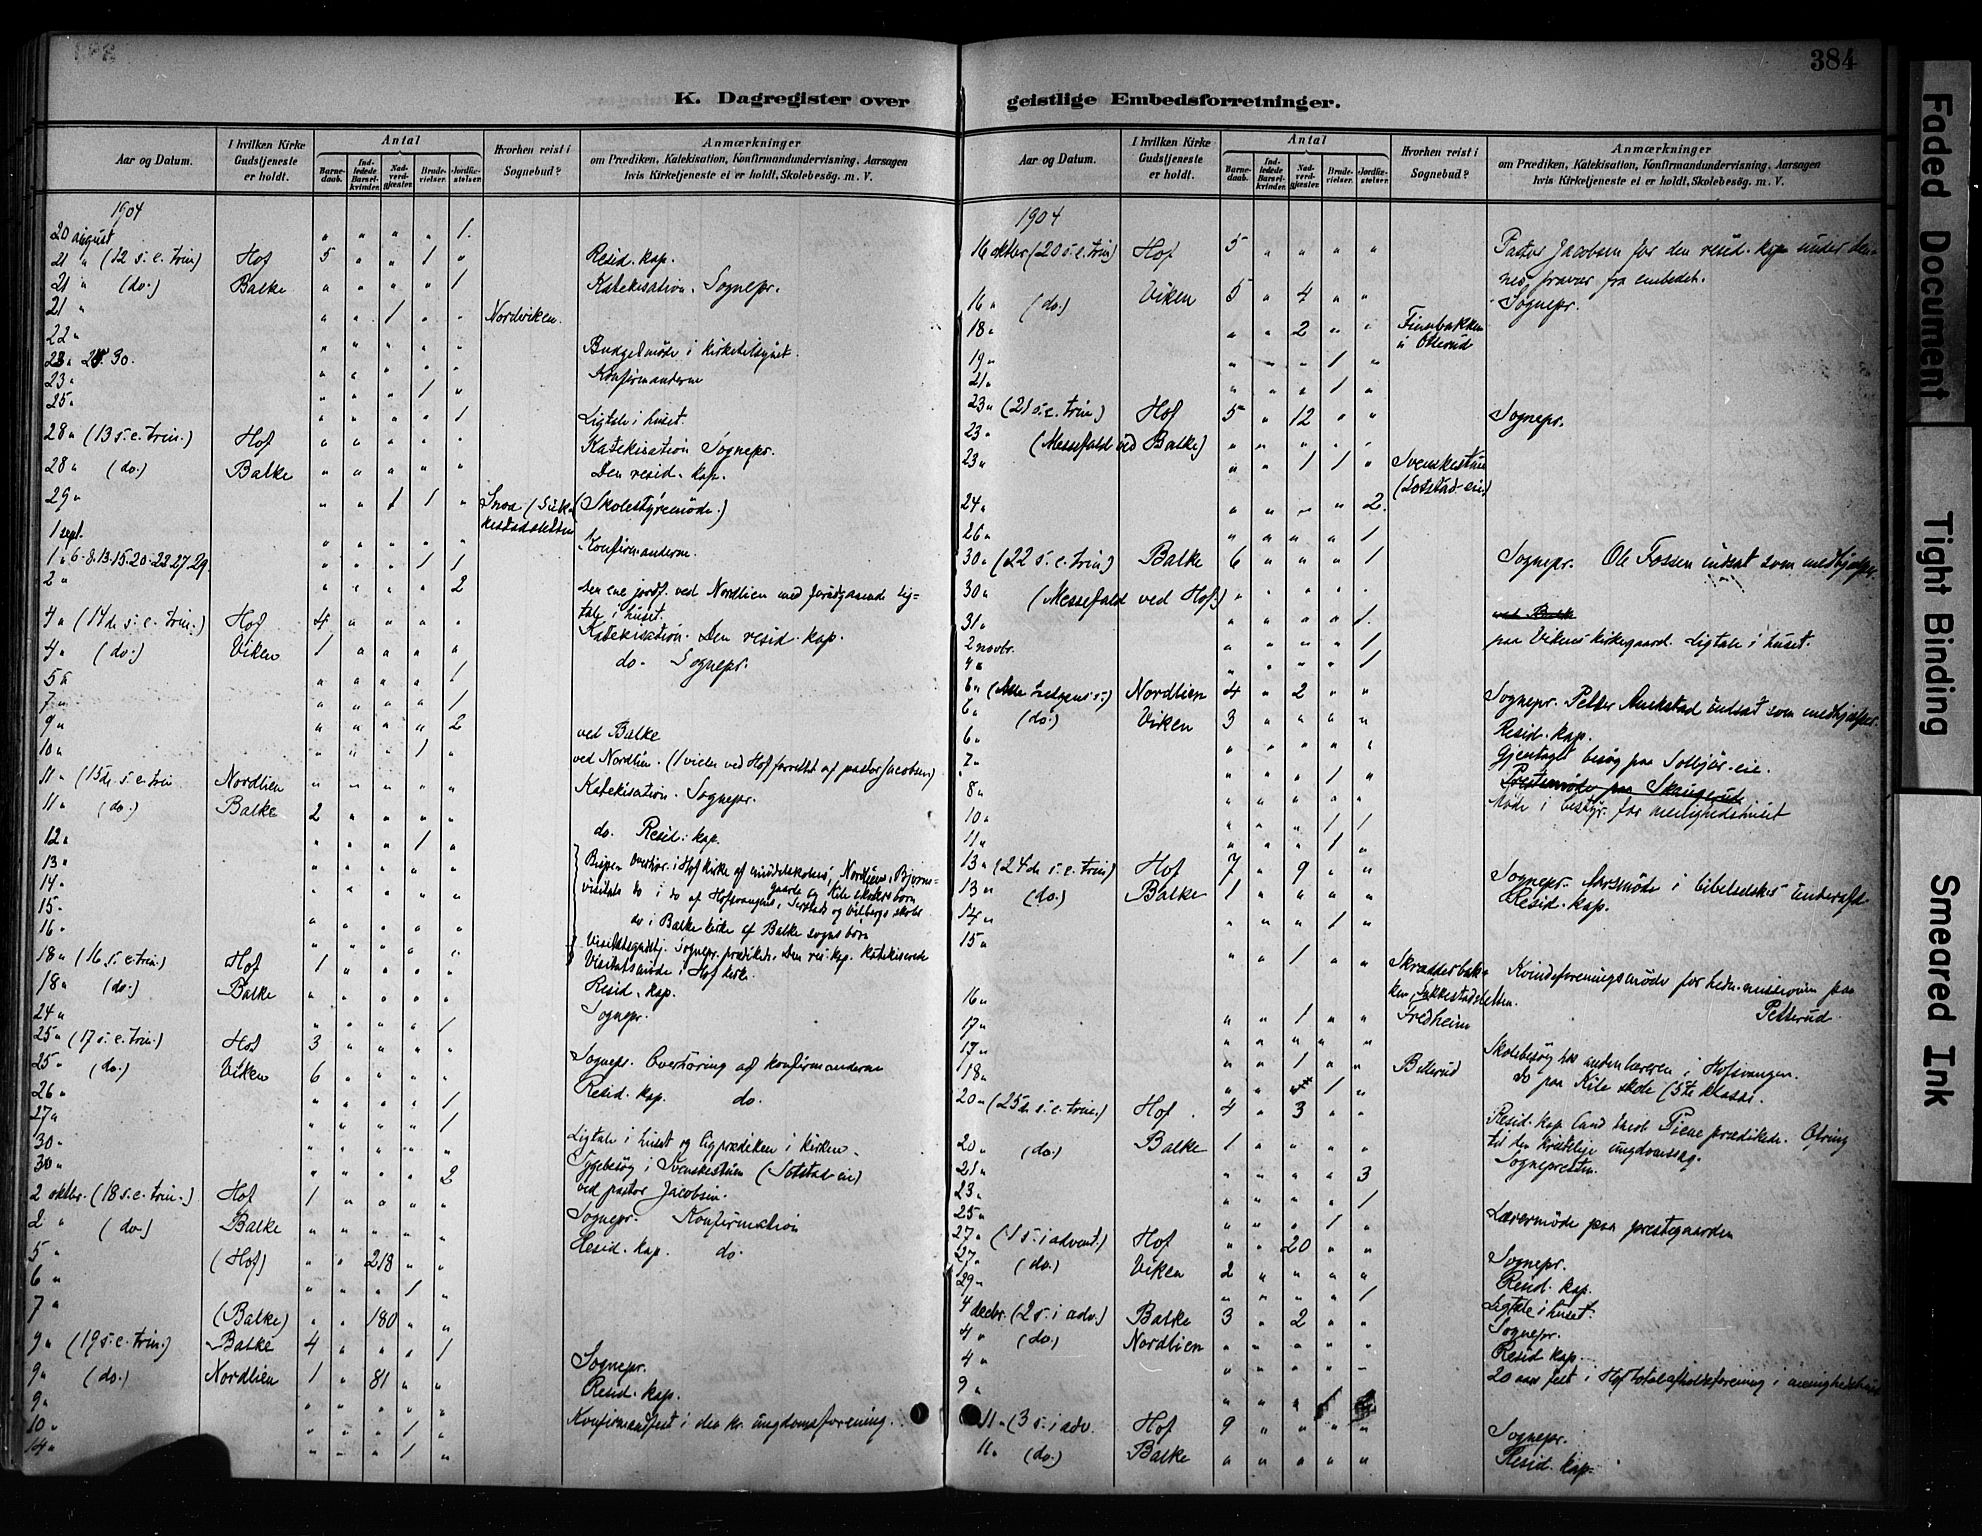 384
K. Dagregister over geistlige Embedsforretninger.
Aar og Datum. I hvilken Kirke Gudstjeneste er holdt. Antal Barnedaab. Indledede Barselkvinder. Nadverdgjester. Brudevielser. Jordfæstelser. Hvorhen reist i Sognebud? Anmærkninger om Prædiken, Katekisation, Konfirmandundervisning, Aarsagen hvis Kirketjeneste ei er holdt, Skolebesög. m. V.
1904
20 august " " " " 1.
21 " (12 s. e. trin) Hof 5 " " 1 " Resid. kap.
21 " (do.) Balke " " " " 1 Katekisation. Sognepr.
21 " " " 1 " " Nordviken.
22 " " " " " "
23 " 25. 30. Budgetmöde i kirketilsynet.
23 " Konfirmanderne
25 " " " " 1 "
" " " " 1 Ligtale i huset.
28 " (13 s. e. trin.) Hof " " " " " Katekisation Sognepr.
28 " (do.) Balke " " " " " Den resid. kap.
29 " " " 1 1 " (Skolestyremöde.)
1 sept. " " " " "
1 " 6-8-13-15-20-22-27-29. " " " 1 1 Konfirmanderne.
2 " " " " " 2 Den ene jordf. ved Nordlien med foregaaende lig=
tale i huset.
4 " (14de s. e. trin.) Hof 4 " " " " Katekisation. Den resid. kap.
4 " (do.) Viken 1 " " " " do. Sognepr.
5 " " " " " 1
7 " " " " " 1
9 " " " " " 2 ved Balke
10 " " " " 1 " ved Nordlien. (1 vielse ved Hof forrettet af pastor Jacobsen)
11 " (15de s. e. trin Nordlien " " " " " Katekisation. Sognepr.
11 " (do.) Balke 2 " " " " do. Resid. kap.
12 " " " " 1 "
13 " Bispe- Overhör. i Hof kirke af middelskolens, Nordliens, Bjørns=
14 " visitats do i do af Hofsvangens,
15 " do i Balke kirke af Balke sogns børn
16 " Visitatsgudstj. Sognepr. prædikede. Den res. kap. katekiserede
18 " (16 s. e. trin.) Hof 1 " " " " Visitatsmöde i Hof kirke.
18 " (do.) Balke " " " " " Resid. kap.
24 " " " " " 1 Sognepr.
25 " (17 s. e. trin.) Hof 3 " " " "
25 " (do.) Viken 6 " " " " Sognepr. Overhöring af konfirmanderne
26 " " " " " 1 Resid. kap. do.
27 " " " " " 1
30 " Ligtale i huset og ligprædiken i kirken.
30 " " " " " 2 Sygebesög i Svenskestuen (Sotstad-eie)
ved pastor Jacobsen.
2 oktbr. (18 s. e. trin.) Hof 1 " " " " Sognepr. Konfirmation
2 " (do.) Balke " " " " " Resid. kap. do.
5 " (Hof) " " 218 " "
6 " " " " 1 "
7 " (Balke) " " 180 " "
9 " (19 s. e. trin.) Balke 4 " " " 1 Sognepr.
9 " (do.) Nordlien 1 " 81 " " Resid. kap.
9 " " " " " " Konfirmandfest i den kr. ungdomsforening.
10 " " " " 1 "
14 " " " " 1 "
Aar og Datum. I hvilken Kirke Gudstjeneste er holdt. Antal Barnedaab. Indledede Barselkvinder. Nadverdgjester. Brudevielser. Jordfæstelser. Hvorhen reist i Sognebud? Anmærkninger om Prædiken, Katekisation, Konfirmandundervisning, Aarsagen hvis Kirketjeneste ei er holdt, Skolebesög. m. V.
1904
16 oktbr (20 s. e. trin) Hof 5 " " " " Pastor Jacobsen for den resid. kap. under den-
nes fravær fra embedet.
16 " (do.) Viken 5 " 4 " " Sognepr.
18 " " " 2 " " Finnbakken
u Otterud
19 " " " " 1 "
21 " " " " 1 "
23 " (21 s. e. trin.) Hof 5 " 12 " " Sognepr.
23 " (Messefald ved Balke) " " " " "
23 " " " 1 1 " Svenskestuen
(Sotstad-eie)
24 " " " " " 2.
26 " " " " " 1
30 " (22 s. e. trin) Balke 6 " " " 1 Sognepr. Ole Fossen indsat som medhjælper
30 " (Messefald ved Hof) " " " " " ved Balke
31 " " " " " 1.
2 novbr. " " " " 1 paa Vikens kirkegaard. Ligtale i huset.
4 " " " " " 1
6 " (Alle helgens s.) Nordlien 4 " 2 " " Sognepr. Petter indsat som medhjælper
6 " (do.) Viken 3 " " " " Resid. kap.
6 " Gjentaget besög paa Solbjör-eie.
7 " " " " 1 " Prestemöde paa
8 " Möde i bestyr. for menighedshuset
10 " " " " 1 1
11 " " " " 1 "
13 " (24de s. e. trin) Hof 7 " 9 " " Sognepr. Aarsmöde i bibelselsk. underafd.
13 " (do.) Balke 1 " " " " Resid. kap.
14 " " " " 1 "
15 " " " 1 " " Skrædderbak-
ken, Sukkestadsletten. Kvindeforeningsmöde for hedn. missionen paa
Petterud
16 " " " 1 " " Fredheim
17 " " " " " " Skolebesög hos andenlæreren i Hofsvangen.
17 " " " 1 " " Bilterud do paa Kile skole (5te klasse.
18 " " " " 1 "
20 " (25de s. e. trin.) Hof 4 " 3 " " Resid. kap. Cand. theol. Piene prædikede. Ofring
til den kristelige ungdomssag.
20 " (do.) Balke 1 " " " " Sognepresten.
21 " " " " " 3
23 " " " " " 1
25 " " " " 1 " Lærermöde paa prestegaarden
27 " (1 s. i advent.) Hof " " 20 " " Sognepr.
27 " (do.) Viken 2 " " " " Resid. kap.
29 " " " " " 1 Ligtale i huset.
4 decbr. (2 s. i adv.) Balke 3 " 2 " " Sognepr.
4 " (do.) Nordlien " " " " " Resid kap.
4 " 20 aars fest i Hof totalafholdsforening i menighedshuset
9 "
11 " (3 s. i adv. Hof 9 " " " " Sognepr.
11 " (do.) Balke " " " " " Resid. kap.
Faded Document
Tight Binding
Smeared Ink